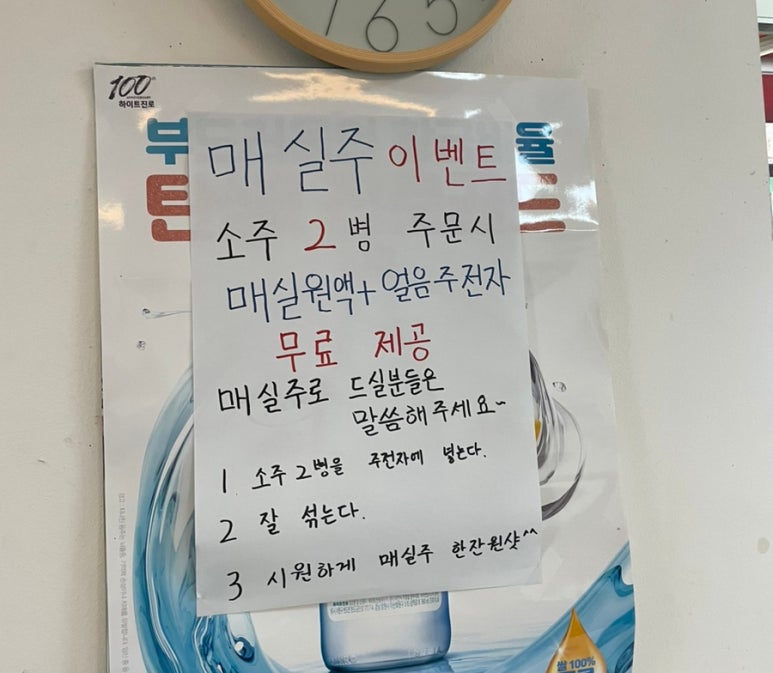 6 5
100
하이트진로
매실주 이벤트
소주 2병 주문시
매실원액+얼음주전자
무료 제공
매실주로 드실분들은
말씀해주세요~
1 소주 2병을 주전자에 넣는다.
2 잘 섞는다.
3 시원하게 매실주 한잔원샷^^
쌀 100%